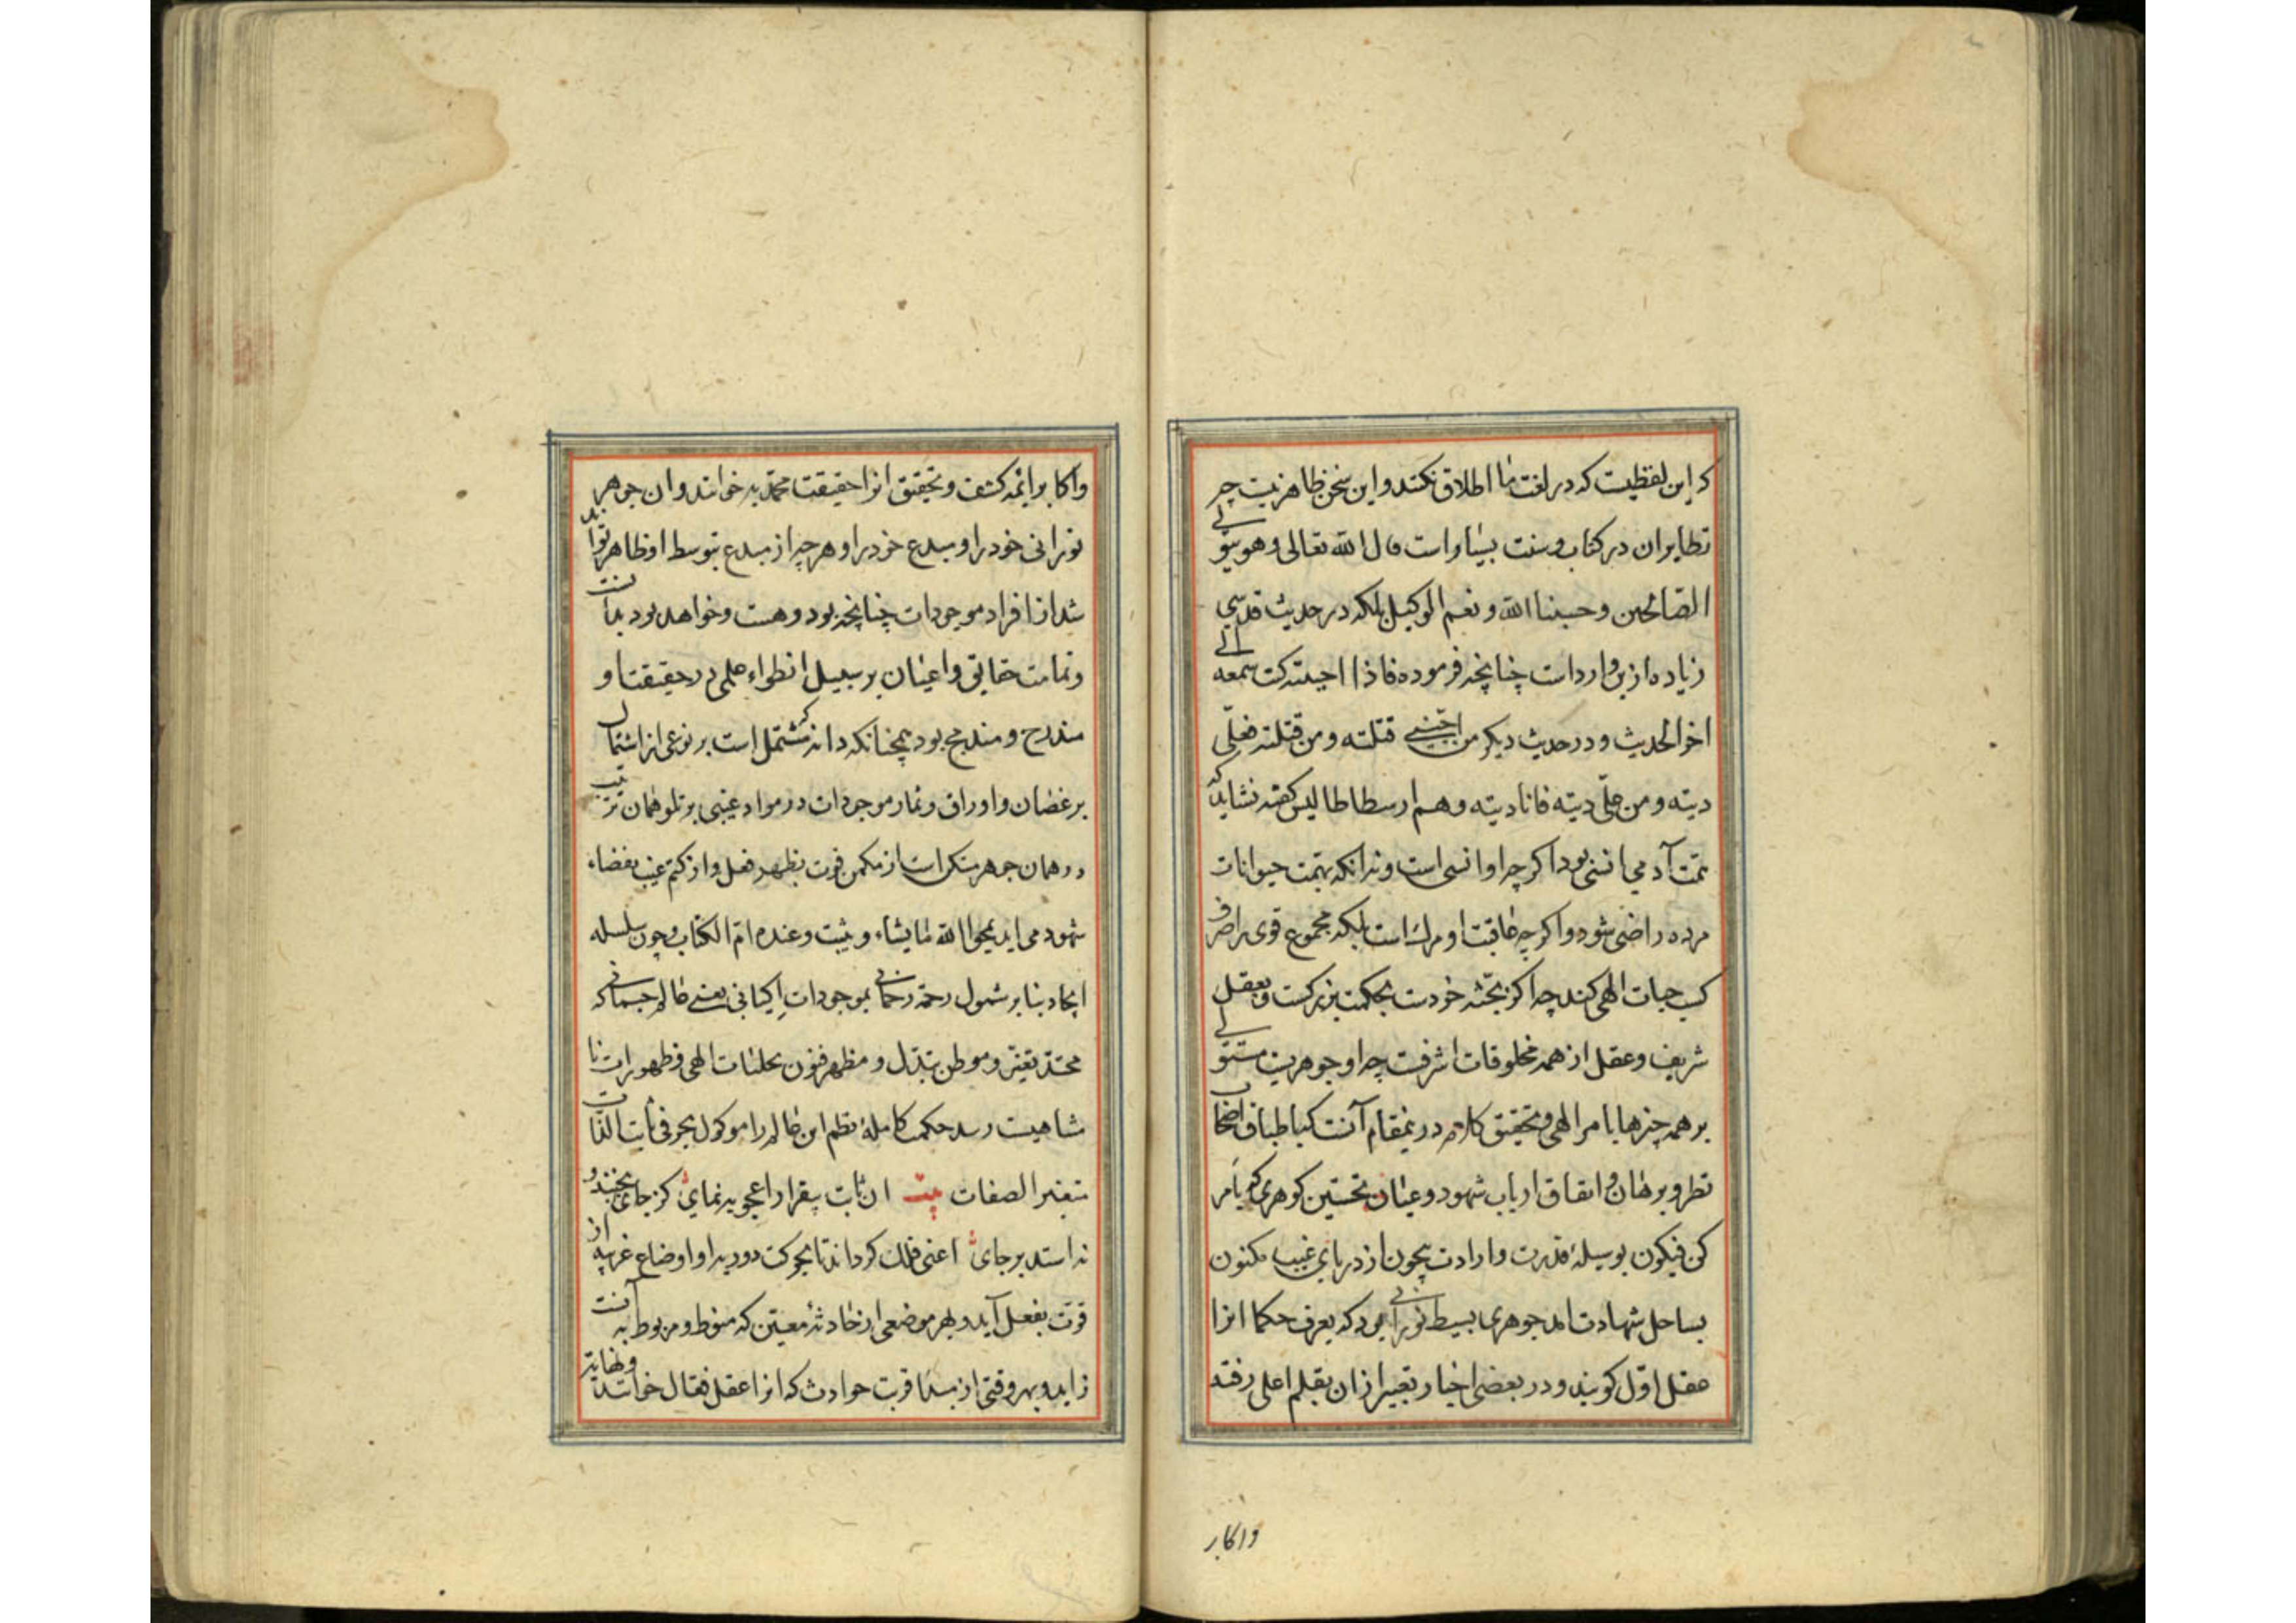 که این لفظیست که در لغت ما اطلاق نکنند و این سخن ظاهر نیست چه
نظایر ان در کتاب و سنت بسیار است قال الله تعالی وهو یتولی
الصالحین وحسبنا الله ونعم الوکیل بلکه در حدیث قدسی
زیاده ازین وارداست چنانچه فرموده فاذا احببته کنت سمعه الی
اخر الحدیث و در حدیث دیکر من احبنی قتلته ومن قتلته فعلی
دیته ومن علی دیته فانا دیته و هم ارسطاطالیس کفته نشاید که
همت آدمی انسی بود اکرچه او انسی است و نه انکه بهمت حیوانات
مرده راضی شود و اکرچه عاقبت او مرک است بلکه مجموع قوی را صرف
کسب حیات الهی کند چه اکر بجثه خردست بحکمت بزرکست و بعقل
شریف و عقل از همه مخلوقات اشرفست چه او جوهریست مستولی
بر همه چیزها بامر الهی و تحقیق کلام درینمقام آنست که باطباق اصحاب
نظر و برهان و اتفاق ارباب شهود و عیان نخستین کوهری که بامر
کن فیکون بوسیلهٔ قدرت و ارادت بیچون از دریای غیب مکنون
بساحل شهادت امد جوهری بسیط نورانی بود که بعرف حکما انرا
عقل اول کویند و در بعضی اخبار تعبیر ازان بقلم اعلی رفته
واکابر
واکابر ائمه کشف و تحقیق انرا حقیقت محمدیه خوانند و ان جوهر
نورانی خود را و مبدع خود را و هرچه از مبدع بتوسط او ظاهر تواند
شد از افراد موجودات چنانچه بود و هست و خواهد بود بدانست
و تمامت حقایق و اعیان بر سبیل انطواء علمی در حقیقت او
مندرج و مندمج بود همچنانکه دانه که مشتمل است بر نوعی از اشتمال
بر غصان و اوراق و ثمار موجودات در مواد عینی بر تلو همان ترتیب
در همان جوهر متکن است از مکمن قوت بظهر فعل و از کتم غیب بفضاء
شهود می اید یمحوا الله ما یشاء ویثبت وعنده ام الکتاب و چون سلسله
ایجاد بنا بر شمول رحمة رحمانی بموجودات کیانی یعنی عالم جسمانی که
محتد تغیر و موطن تبدل و مظهر فنون تجلیات الهی و ظهورات نا
متناهیست رسد حکمت کامله نظم این عالم را موکول بجرفی ثابت الذات
متغیر الصفات بیت ان ثابت بیقرار اعجوبه نمای کز جای نجنبد و
نه استد بر جای اعنی فلک کردانند تا بحرکت دوریه او اوضاع غریبه از
قوت بفعل آید و بهر موضعی از حادثهٔ معین که منوط و مربوط به آنست
زاید و بهر وقتی از مبدا قربت حوادث که انرا عقل فعال خوانند و نهایت